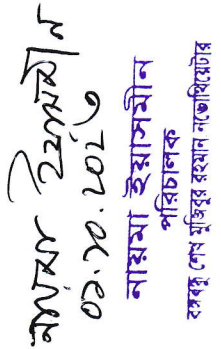 নায়মা ইয়াসমীন
০১.১০.২০২৩
নায়মা ইয়াসমীন
পরিচালক
বঙ্গবন্ধু শেখ মুজিবুর রহমান নভোথিয়েটার